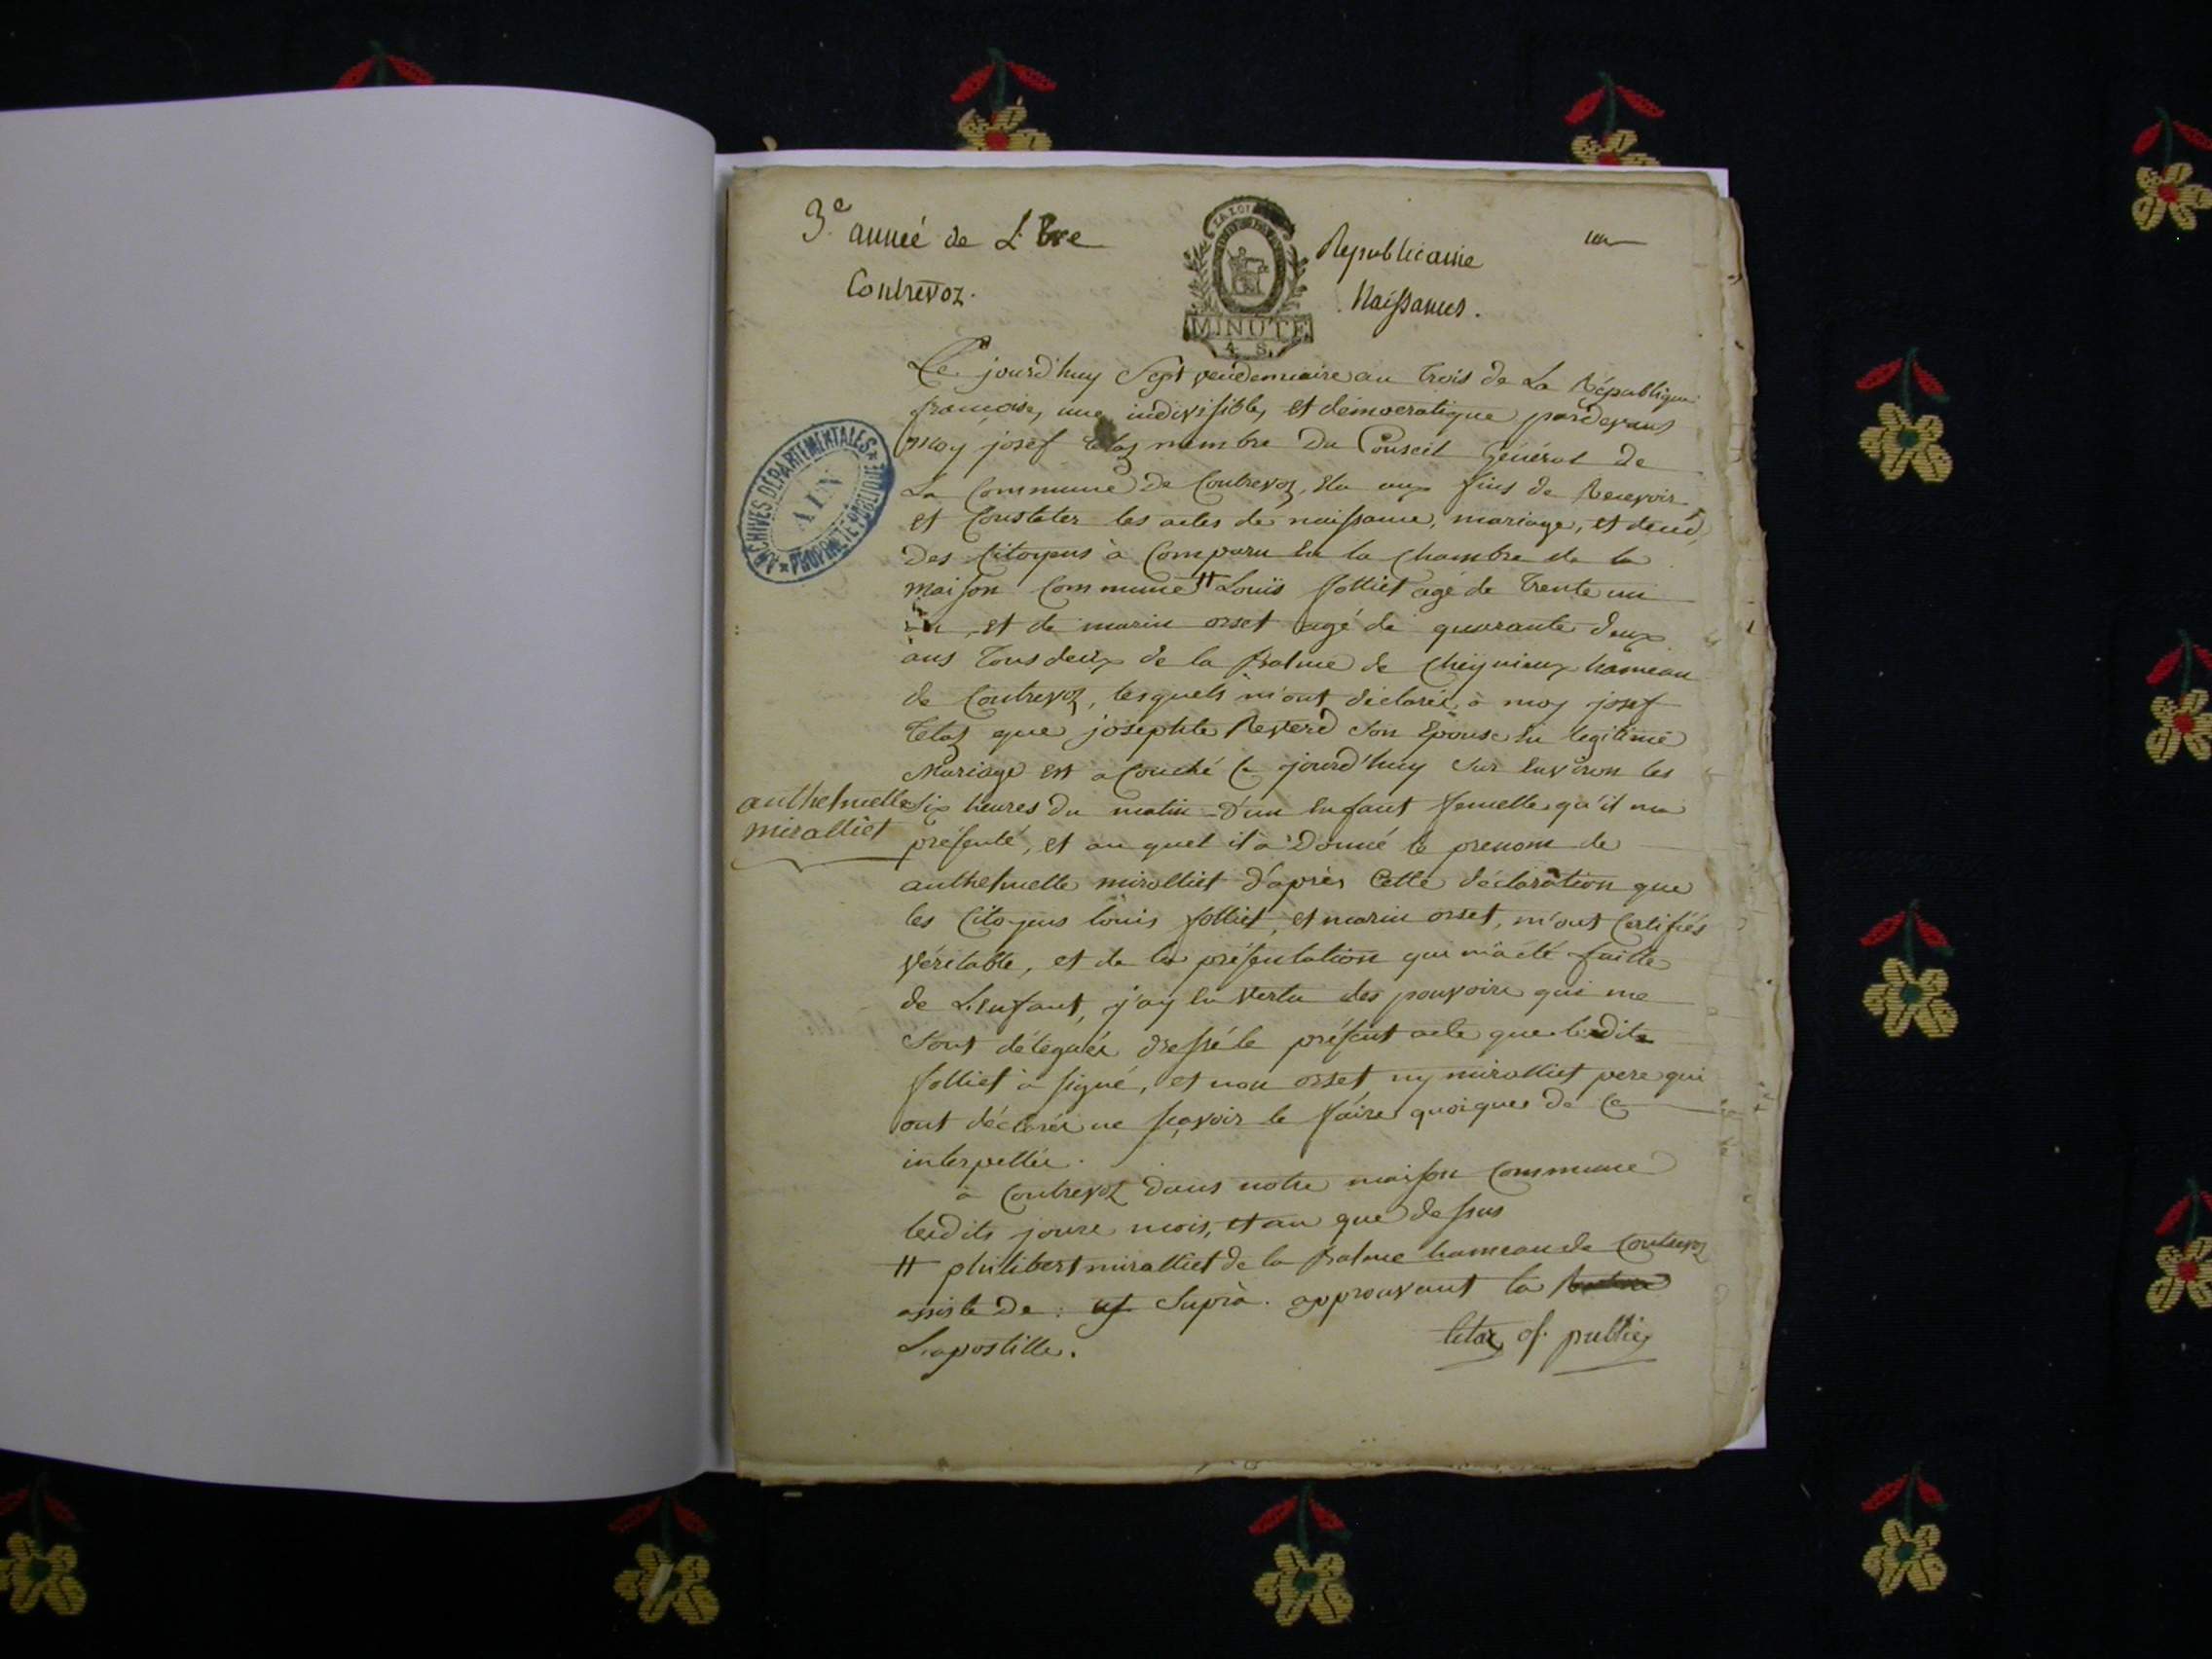 3e année de L'Ere Republicaine un
Contrevoz. Naissances.
LA LOI
MINUTE
4 S.
ARCHIVES DÉPARTEMENTALES
AIN
PROPRIÉTÉ PUBLIQUE
Ce jourd'huy Sept vendemiaire an trois de La République
françoise, une indivisible, et démocratique pardevant
moy josef tetaz membre du Conseil Général de
La Commune de Contrevoz, élu aux fins de Recevoir
et Constater les actes de naissance, mariage, et deced,
des Citoyens à Comparu en la Chambre de la
maison Commune # Louis folliet agé de trente un
an, et de marin orset agé de quarante deux
ans tous deux de la Balme de Cheynieux hameau
de Contrevoz, lesquels m'ont déclarés, à moy josef
tetaz que josephte Reverd son Epouse en legitime
Mariage est acouché Ce jourd'huy sur Environ les
six heures du matin d'un Enfant femelle qu'il ma
anthelmette
miralliet
présenté, et au quel il a Donné le prenom de
anthelmette miralliet d'après Cette déclaration que
les Citoyens louis folliet, et marin orset, m'ont Certifiés
véritable, et de la présentation qui m'a été faitte
de L'enfant, j'ay En Vertu des pouvoirs qui me
Sont délegués dressé le présent acte que ledit
folliet à signé, et non orset ny miralliet pere qui
ont déclarés ne sçavoir le faire quoiques de Ce
interpellés.
à Contrevoz dans notre maison Commune
lesdits jours mois, et an que dessus
# philibert miralliet de la Balme hameau de Contrevoz
assisté de: ut Suprà. approuvant la
L'apostille.
tetaz of. public